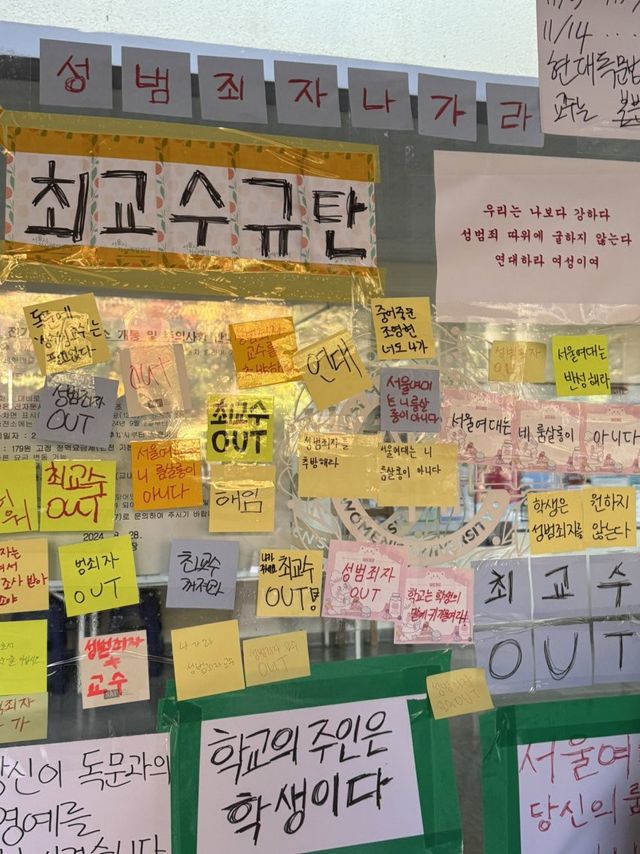 성범죄자나가라
11/14 ...
현대독문법
교수는
최교수규탄
우리는 나보다 강하다
성범죄 따위에 굴하지 않는다
연대하라 여성이여
독문에
성범죄교수는
필요없다
OUT
성범죄자
교수를
연대
중어중문
조영현
너도 나가
서울여대는
반성해라
성범죄자
OUT
최교수
OUT
서울여대
는 니 룸살
롱이 아니다
서울여대는
네 룸살롱이
아니다
최교수
OUT
서울여대는
니 룸살롱이
아니다
해임
성범죄자를
추방해라
서울여대는 니
룸살롱이 아니다
학생은
성범죄자를
원하지
않는다
범죄자
OUT
최교수
꺼져라
최교수
OUT
성범죄자
OUT
학교는 학생의
최 교 수
OUT
성범죄자
≠
교수
나가라
성범죄자 교수
성범죄자
OUT
OUT
학교의 주인은
학생이다
당신이 독문과의
명예를
서울여
당신의 룸